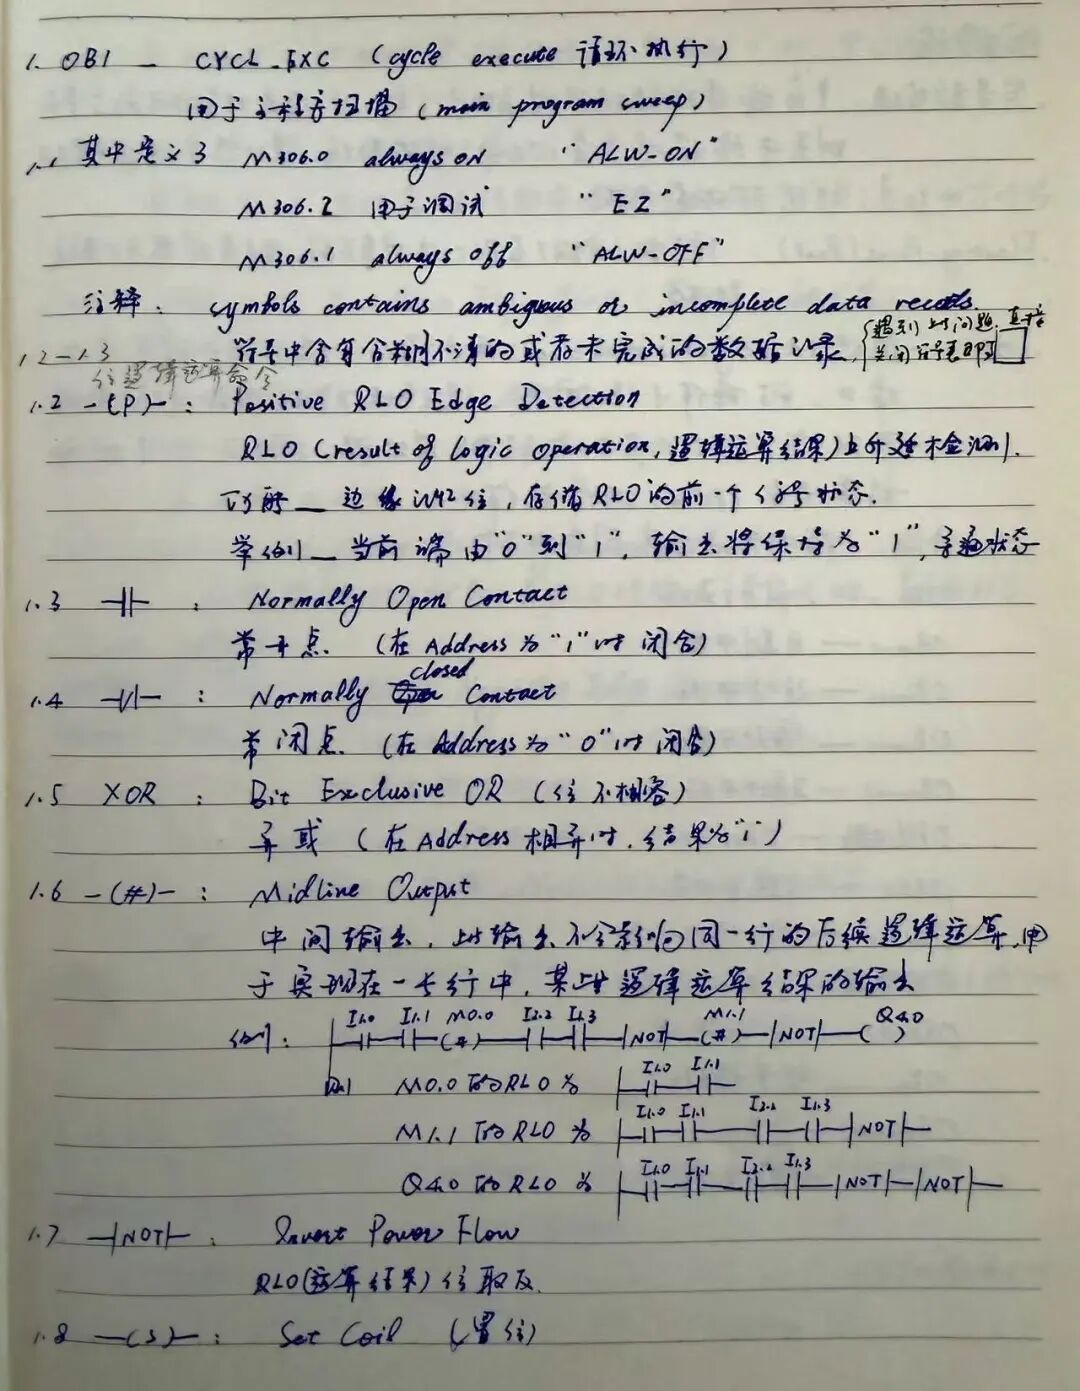 1. OB1 — CYCL_EXC (cycle execute 循环执行)
用于主程序扫描 (main program sweep)
1.1 其中定义了 M306.0 always on "ALW-ON"
M306.2 用于调试 "EZ"
M306.1 always off "ALW-OFF"
注释: symbols contains ambiguous or incomplete data records.
符号中含有含糊不清的或者未完成的数据记录. {遇到此问题, 直接
关闭符号表即可
1.2-1.3
位逻辑运算命令
1.2 -(P)- : Positive RLO Edge Detection
RLO (result of logic operation, 逻辑运算结果) 上升沿检测.
边缘记忆位, 存储RLO的前一个信号状态.
举例 — 当前端由"0"到"1", 输出将保持为"1",
1.3 -| |- : Normally Open Contact
常开点. (在 Address 为 "1" 时 闭合)
1.4 -|/|- : Normally closed Contact
常闭点. (在 Address 为 "0" 时 闭合)
1.5 XOR : Bit Exclusive OR (位不相容)
异或 (在 Address 相异时, 结果为"1")
1.6 -(#)- : Midline Output
中间输出, 此输出不会影响同一行的后续逻辑运算, 用
于实现在一长行中, 某些逻辑运算结果的输出
例: I1.0 I1.1 M0.0 I2.2 I1.3 NOT M1.1 (#) NOT Q4.0
M0.0的RLO为 I1.0 I1.1
M1.1的RLO为 I1.0 I1.1 I2.2 I1.3 NOT
Q4.0的RLO为 I1.0 I1.1 I2.2 I1.3 NOT NOT
1.7 -|NOT|- : Invert Power Flow
RLO(运算结果) 位取反.
1.8 -(S)- : Set Coil (置位)